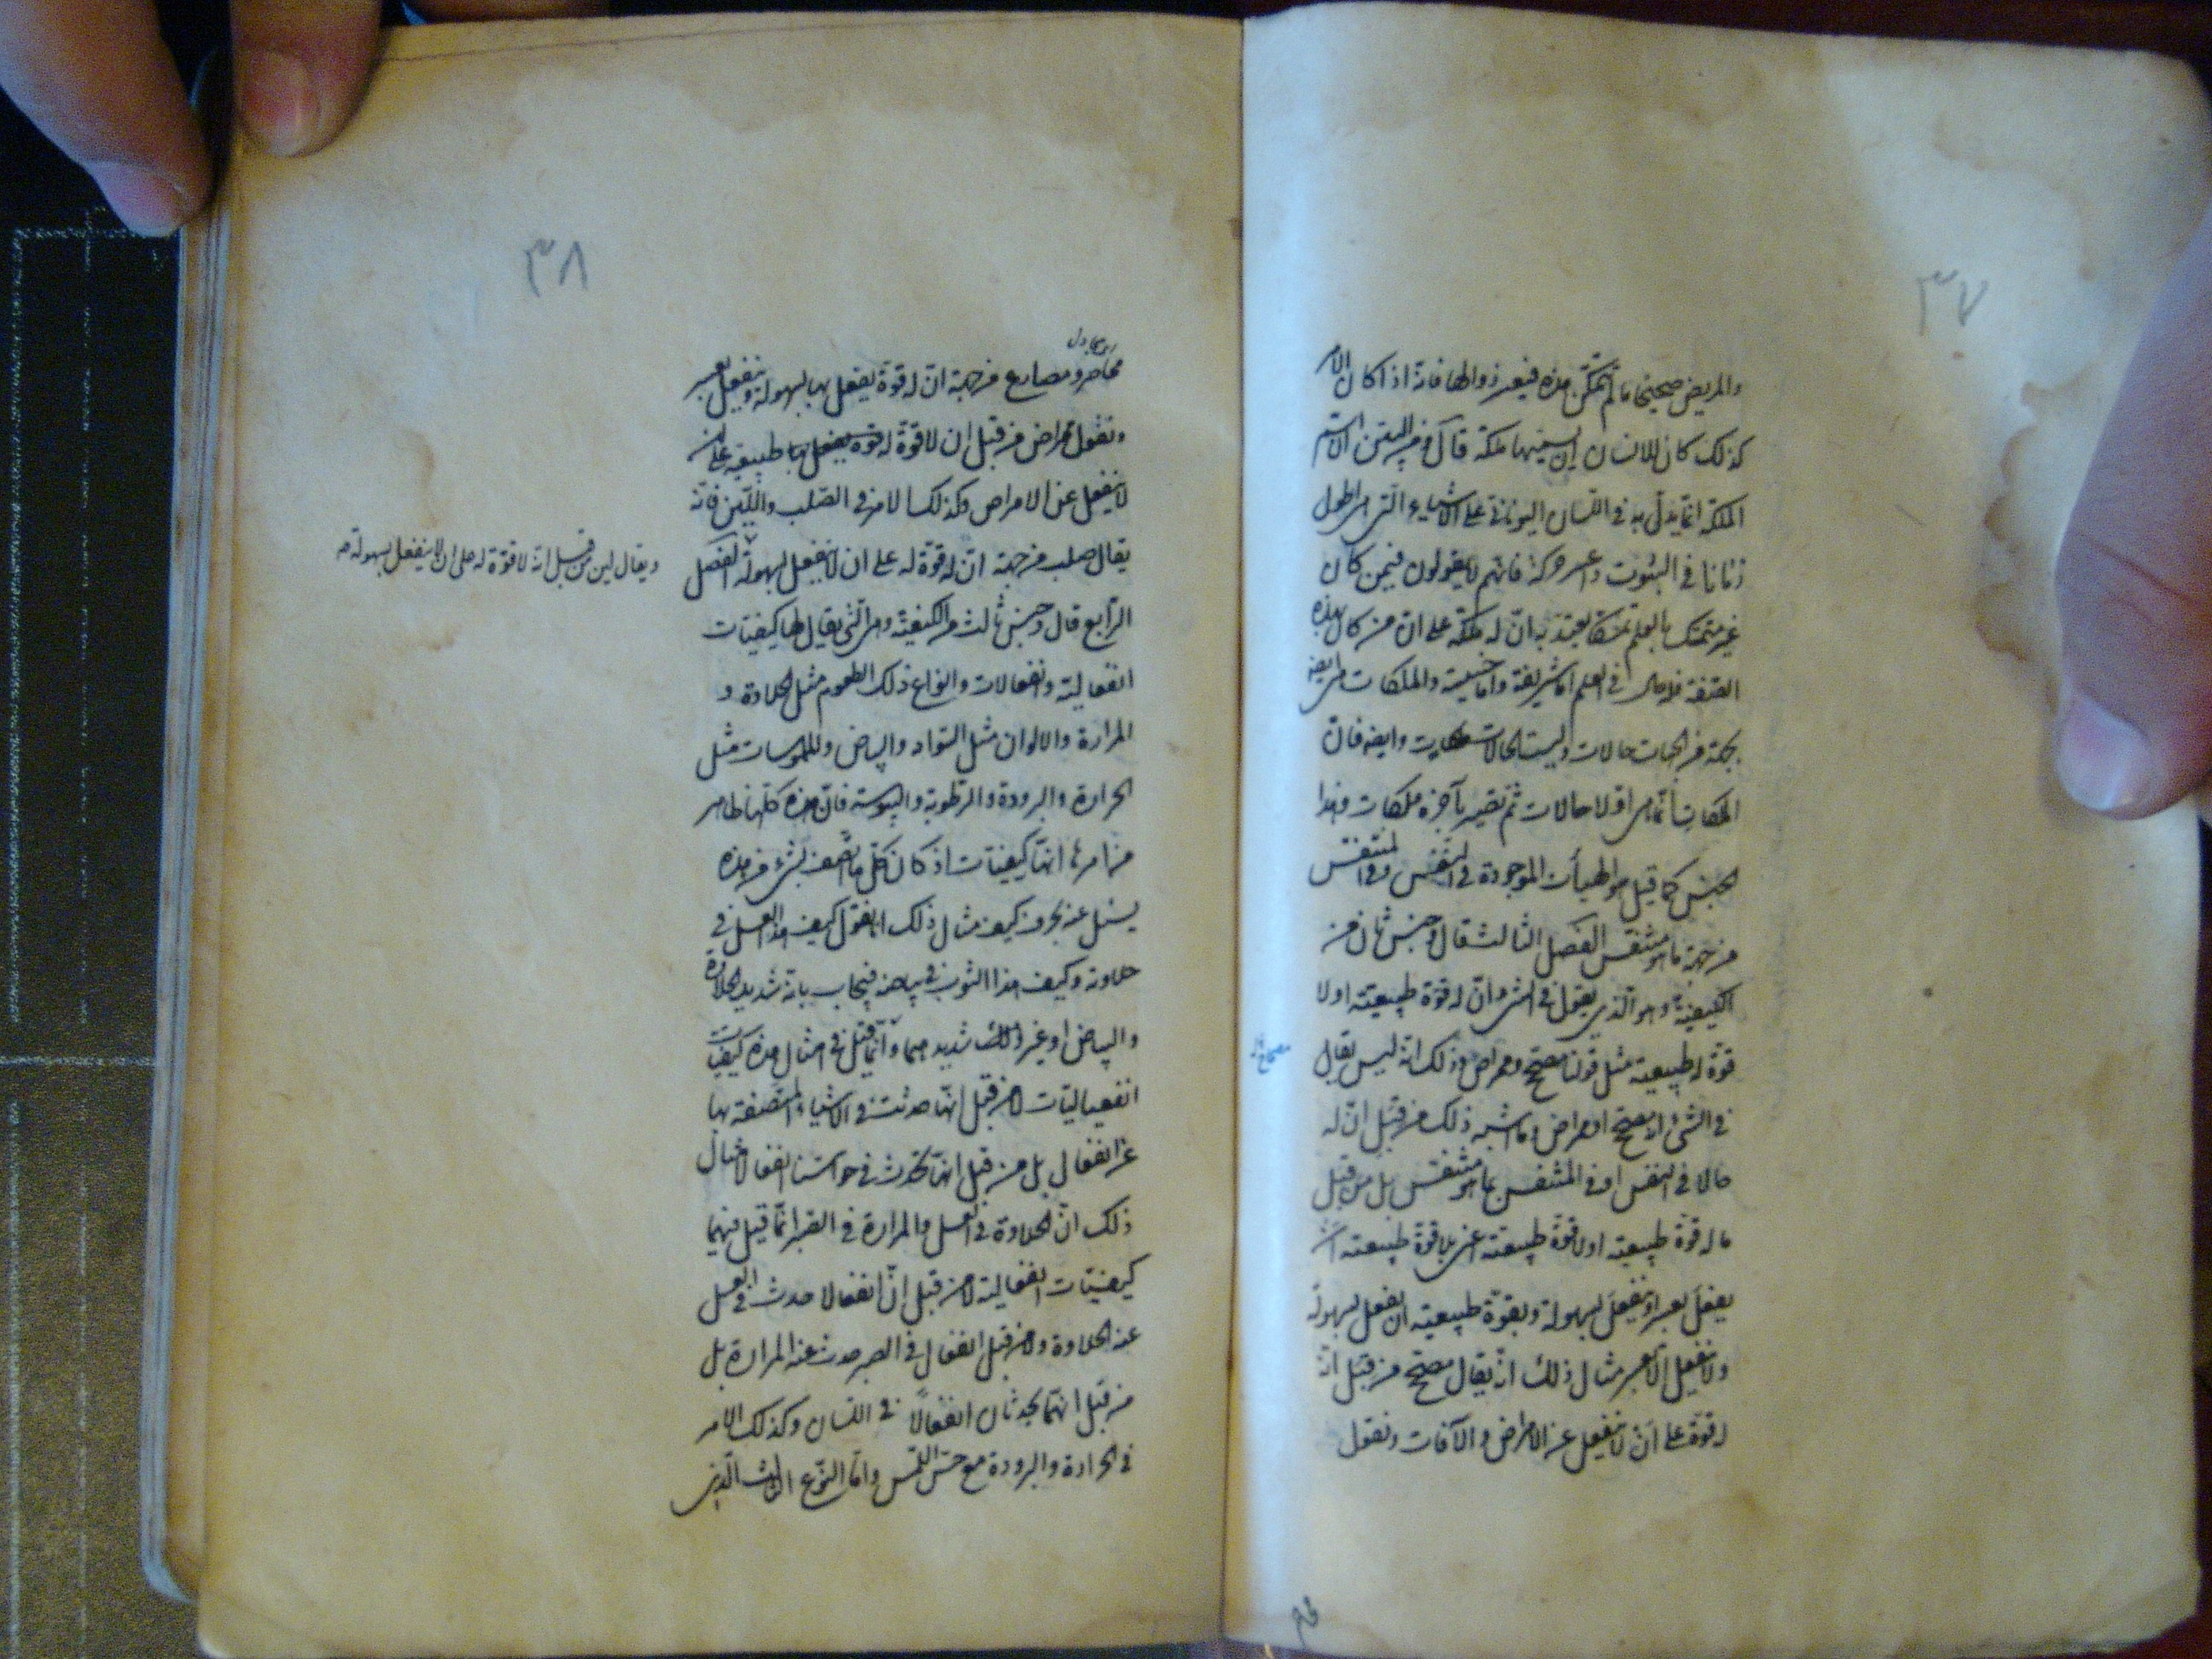 ٣٧
والمريض صحيحا ما لم تتمكن هذه فيعسر زوالها فانه اذا كان الامر
كذلك كان للانسان ان يسميها ملكة قال ومن البين ان اسم
الملكة انما يدل به في اللسان اليوناني على الاشياء التي هي اطول
زمانا في الثبوت واعسر حركة فانهم لا يقولون فيمن كان
غير متمسك بالعلم تمسكا يعتد به ان له ملكة على ان من كان بهذه
الصفة فله حال في العلم اما شريفة واما خسيسة والملكات هي ايضا
بجهة من الجهات حالات وليست الحالات ملكات وايضا فان
الملكات انما هي اولا حالات ثم تصير بآخره ملكات وهذا
الجنس كما قيل هو الهيأت الموجودة في النفس وفي المتنفس
من جهة ما هو متنفس الفصل الثالث قال وجنس ثان من
الكيفية وهو الذي به نقول في الشيء ان له قوة طبيعية او لا
قوة له طبيعية مثل قولنا مصحح وممراض وذلك انه ليس يقال
في الشيء انه مصحح او ممراض وما اشبه ذلك من قبل ان له
حالا في النفس او في المتنفس بما هو متنفس بل من قبل
ما له قوة طبيعية او لا قوة طبيعية اعني بلا قوة طبيعية ان
يفعل بعسر او ينفعل بسهولة وبقوة طبيعية ان يفعل بسهولة
ولا ينفعل الا بعسر مثال ذلك انه يقال مصحح من قبل ان
له قوة على ان لا ينفعل عن الامراض والآفات ونقول
٣٨
محاضر ومصارع من جهة ان له قوة يفعل بها بسهولة وينفعل بعسر
ونقول ممراض من قبل ان لا قوة له طبيعية على ان
لا ينفعل عن الامراض وكذلك الامر في الصلب واللين فانه
يقال صلب من جهة ان له قوة له على ان لا ينفعل بسهولة الفصل
ويقال لين من قبل انه لا قوة له على ان لا ينفعل بسهولة صح
الرابع قال وجنس ثالث من الكيفية وهي التي يقال لها كيفيات
انفعالية وانفعالات وانواع ذلك الطعوم مثل الحلاوة و
المرارة والالوان مثل السواد والبياض والملموسات مثل
الحرارة والبرودة والرطوبة واليبوسة فان هذه كلها ظاهر
من امرها انها كيفيات اذ كان كل ما اتصف بشيء من هذه
يسئل عنه بحرف كيف مثال ذلك انا نقول كيف هذا العسل في
حلاوته وكيف هذا الثوب في بياضه فيجاب بانه شديد الحلاوة
والبياض او غير ذلك شديدهما وانما قيل في امثال هذه كيفيات
انفعاليات لا من قبل انها حدثت في الاشياء المتصفة بها
عن انفعال بل من قبل انها تحدث في حواسنا انفعالا مثال
ذلك ان الحلاوة في العسل والمرارة في الصبر انما قيل فيهما
كيفيات انفعالية لا من قبل ان انفعالا حدث في العسل
عنه الحلاوة ولا من قبل انفعال في الصبر حدث عنه المرارة بل
من قبل انهما يحدثان انفعالا في اللسان وكذلك الامر
في الحرارة والبرودة مع حس اللمس واما النوع الثالث الذي